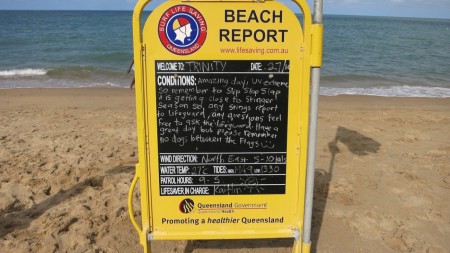 SURF LIFE SAVING
QUEENSLAND
BEACH
REPORT
www.lifesaving.com.au
WELCOME TO: TRINITY DATE: 27/
CONDITIONS: Amazing day, UV extreme
so remember to Slip Slop Slap
it is getting close to Stinger
Season so, any stings report
to lifeguard, any questions feel
free to ask the lifeguard. Have a
great day but please remember
no dogs between the Flags
WIND DIRECTION: North East 5-10
WATER TEMP: 27°C TIDES:
PATROL HOURS: 9-5
LIFESAVER IN CHARGE:
Queensland Government
Queensland Health
Promoting a healthier Queensland